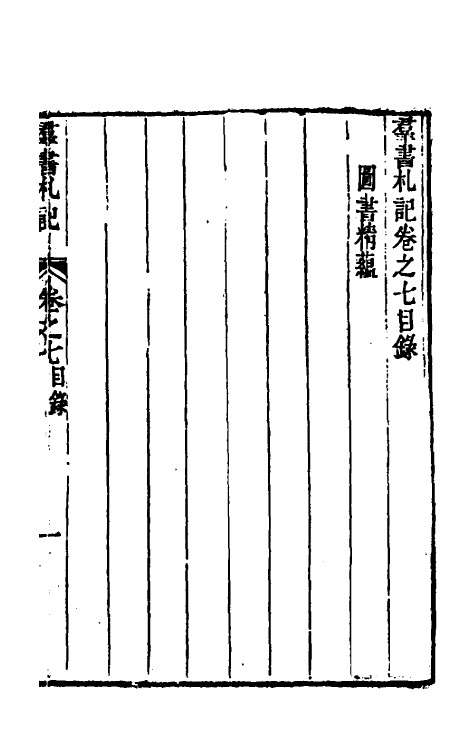 羣書札記卷之七目錄
圖書精蘊
羣書札記
卷之七目錄
一